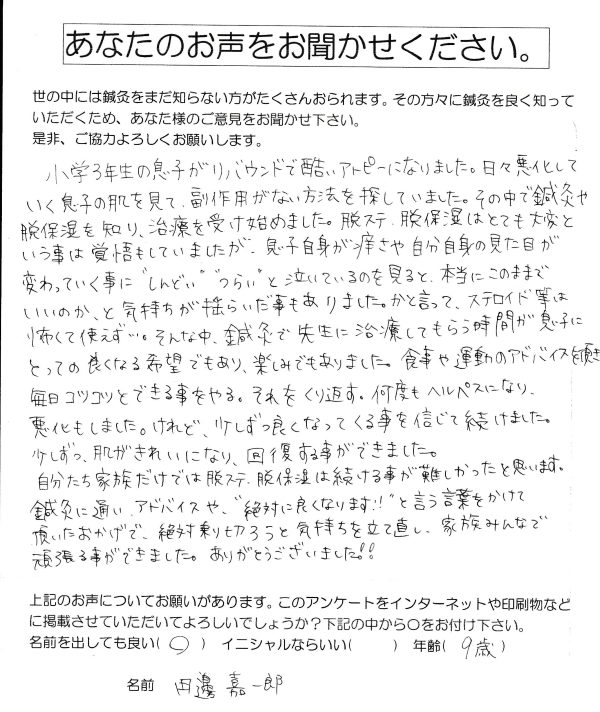 あなたのお声をお聞かせください。
世の中には鍼灸をまだ知らない方がたくさんおられます。その方々に鍼灸を良く知って
いただくため、あなた様のご意見をお聞かせ下さい。
是非、ご協力よろしくお願いします。
小学3年生の息子がリバウンドで酷いアトピーになりました。日々悪化して
いく息子の肌を見て、副作用がない方法を探していました。その中で鍼灸や
脱保湿を知り、治療を受け始めました。脱ステ、脱保湿はとても大変と
いう事は覚悟もしていましたが、息子自身が痒さや自分自身の見た目が
変わっていく事に"しんどい""つらい"と泣いているのを見ると、本当にこのままで
いいのか、と気持ちが揺らいだ事もありました。かと言って、ステロイド等は
怖くて使えず…。そんな中、鍼灸で先生に治療してもらう時間が息子に
とっての良くなる希望でもあり、楽しみでもありました。食事や運動のアドバイスを頂き
毎日コツコツとできる事をやる。それをくり返す。何度もヘルペスになり、
悪化もしました。けれど、少しずつ良くなってくる事を信じて続けました。
少しずつ、肌がきれいになり、回復する事ができました。
自分たち家族だけでは脱ステ、脱保湿は続ける事が難しかったと思います。
鍼灸に通い、アドバイスや、"絶対に良くなります!!"と言う言葉をかけて
頂いたおかげで、絶対乗り切ろうと気持ちを立て直し、家族みんなで
頑張る事ができました。ありがとうございました!!
上記のお声についてお願いがあります。このアンケートをインターネットや印刷物など
に掲載させていただいてよろしいでしょうか？下記の中から○をお付け下さい。
名前を出しても良い(○) イニシャルならいい( ) 年齢(9歳)
名前 田邊 嘉一郎